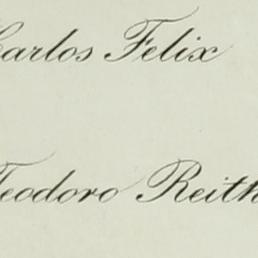 Carlos Felix
Teodoro Reith